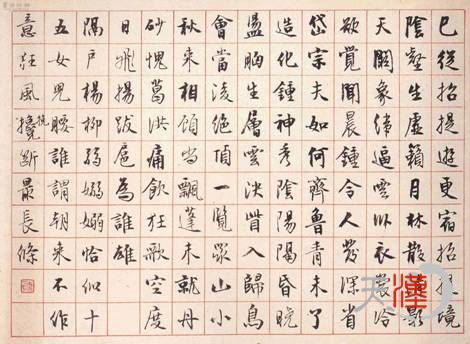 已從招提遊更宿招提境
陰壑生虛籟月林散清影
天闕象緯逼雲卧衣裳冷
欲覺聞晨鐘令人發深省
岱宗夫如何齊魯青未了
造化鍾神秀陰陽昏曉
盪胸生層雲決眥入歸鳥
會當凌絕頂一覽眾山小
秋來相顧尚飄蓬未就丹
砂愧葛洪痛飲狂歌空度
日飛揚跋扈為誰雄
隔戶楊柳弱嫋嫋恰似十
五女兒腰誰謂朝來不作
意狂風斷最長條
天漢